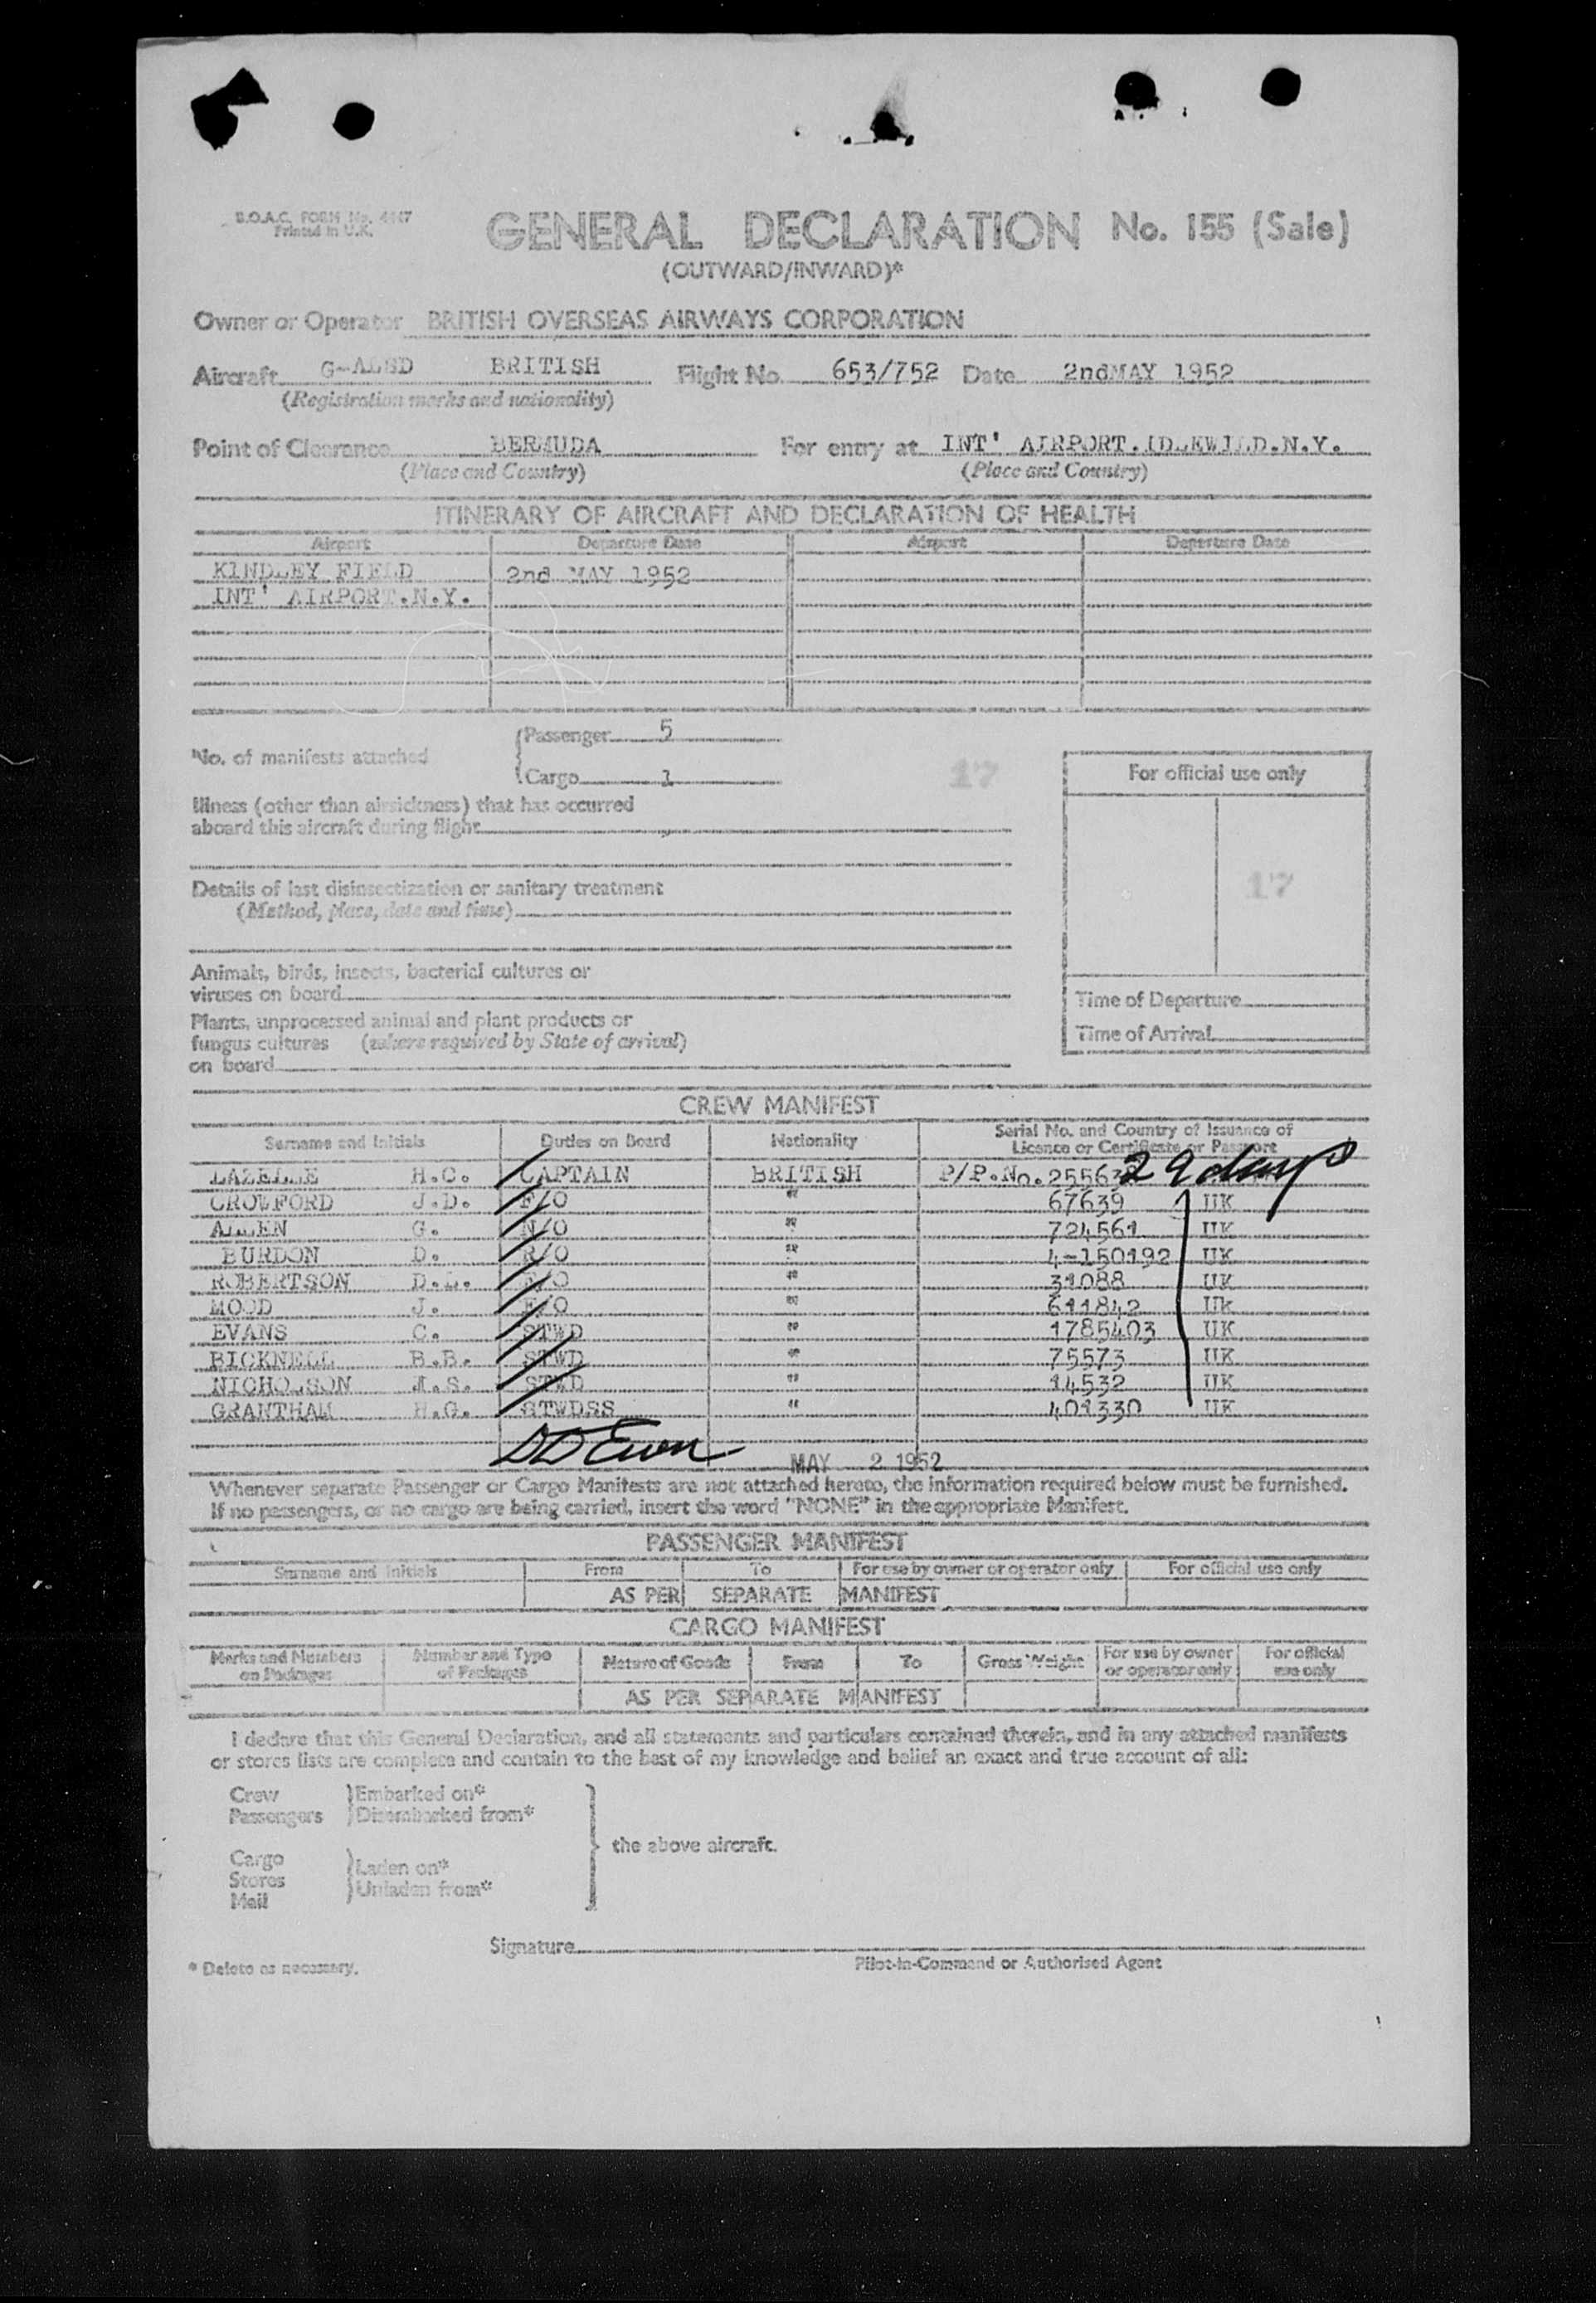 B.O.A.C. FORM No. 4447
Printed in U.K.
GENERAL DECLARATION No. 155 (Sale)
(OUTWARD/INWARD)*
Owner or Operator BRITISH OVERSEAS AIRWAYS CORPORATION
Aircraft G-ALSD BRITISH Flight No. 653/752 Date 2ndMAY 1952
(Registration marks and nationality)
Point of Clearance BERMUDA For entry at INT' AIRPORT.IDLEWILD.N.Y.
(Place and Country) (Place and Country)
ITINERARY OF AIRCRAFT AND DECLARATION OF HEALTH
Airport Departure Date Airport Departure Date
KINDLEY FIELD 2nd MAY 1952
INT' AIRPORT.N.Y.
No. of manifests attached
Passenger 5
Cargo 1
17
For official use only
Illness (other than airsickness) that has occurred
aboard this aircraft during flight
17
Details of last disinsectization or sanitary treatment
(Method, place, date and time)
Animals, birds, insects, bacterial cultures or
viruses on board
Time of Departure
Plants, unprocessed animal and plant products or
fungus cultures (where required by State of arrival)
on board
Time of Arrival
CREW MANIFEST
Surname and Initials Duties on Board Nationality Serial No. and Country of Issuance of
Licence or Certificate or Passport
LAZELLE H.C. CAPTAIN BRITISH P/P.No. 29 days
CROWFORD J.D. F/O " 67639 UK
ALLEN G. N/O " 724561 UK
BURDON D. R/O " 4-150192 UK
ROBERTSON D.L. " 31088 UK
MOOD J. E/O " 611842 Uk
EVANS C. STWD " 1785403 UK
BICKNELL B.B. STWD " 75573 UK
NICHOLSON M.S. STWD " 14532 UK
GRANTHAM H.G. STWDSS " 401330 UK
MAY 2 1952
Whenever separate Passenger or Cargo Manifests are not attached hereto, the information required below must be furnished.
If no passengers, or no cargo are being carried, insert the word "NONE" in the appropriate Manifest.
PASSENGER MANIFEST
Surname and Initials From To For use by owner or operator only For official use only
AS PER SEPARATE MANIFEST
CARGO MANIFEST
Marks and Numbers on Packages Number and Type of Packages Nature of Goods From To Gross Weight For use by owner or operator only For official use only
AS PER SEPARATE MANIFEST
I declare that this General Declaration, and all statements and particulars contained therein, and in any attached manifests
or stores lists are complete and contain to the best of my knowledge and belief an exact and true account of all:
Crew Embarked on*
Passengers Disembarked from*
the above aircraft.
Cargo
Stores Laden on*
Mail Unladen from*
Signature
* Delete as necessary. Pilot-in-Command or Authorised Agent